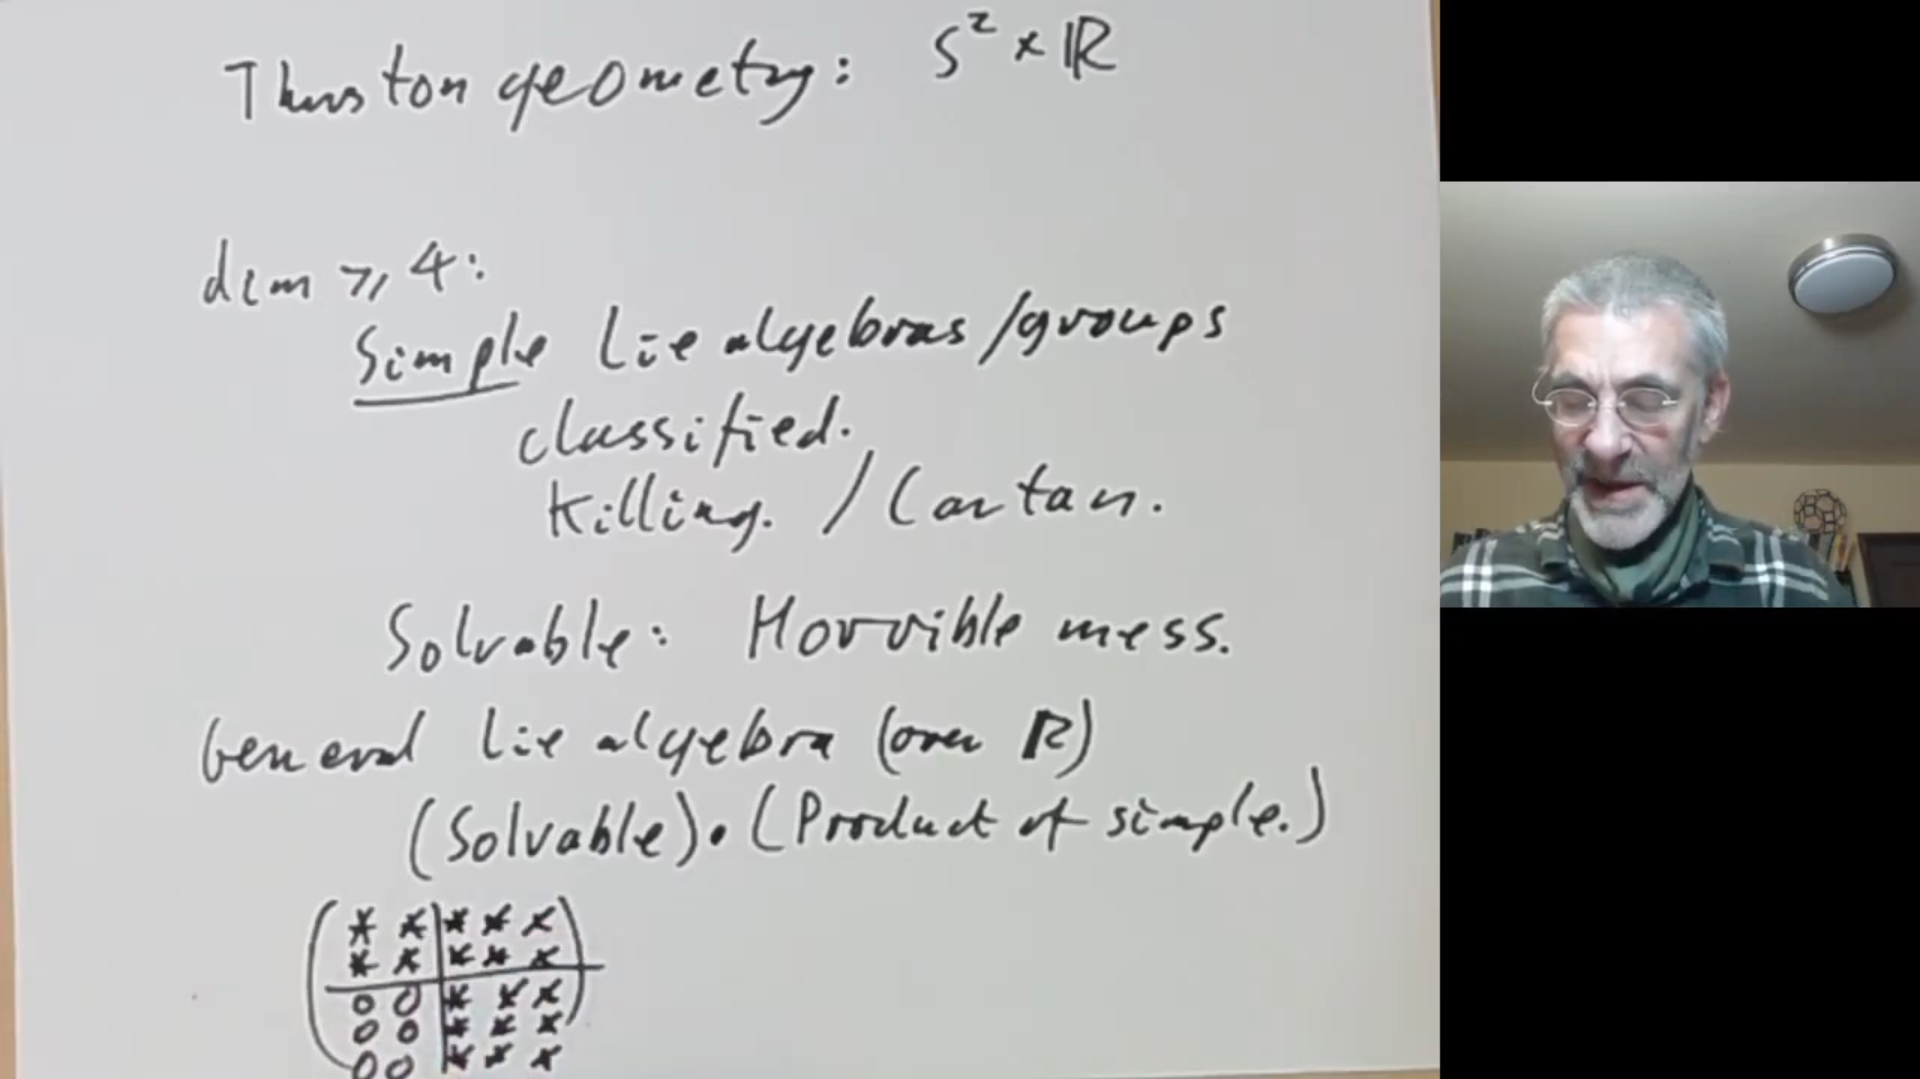 Thurston geometry: S² × ℝ
dim ⩾ 4:
Simple Lie algebras/groups
classified.
Killing. / Cartan.
Solvable: Horrible mess.
General Lie algebra (over ℝ)
(Solvable) • (Product of simple.)
* * | * * *
* * | * * *
0 0 | * * *
0 0 | * * *
0 0 | * * *